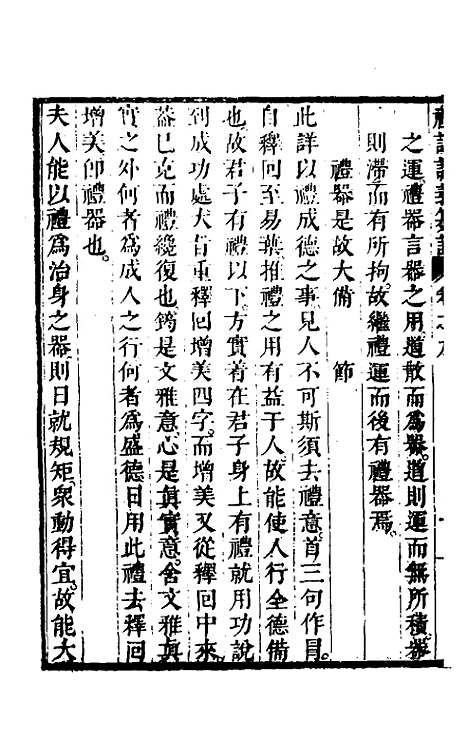 禮記講義集註 卷之九
之運禮器言器之用道散而為器道則運而無所積器
則滯而有所拘故繼禮運而後有禮器焉
禮器是故大備 節
此詳以禮成德之事見人不可斯須去禮意首三句作目
自釋回至易葉推禮之用有益于人故能使人行全德備
也故君子有禮以下方實着在君子身上有禮就用功說
到成功處大旨重釋回增美四字而增美又從釋回中來
葢已克而禮纔復也筠是文雅意心是眞實意舍文雅眞
實之外何者為成人之行何者為盛德日用此禮去釋回
增美卽禮器也
夫人能以禮為治身之器則日就規矩衆動得宜故能大